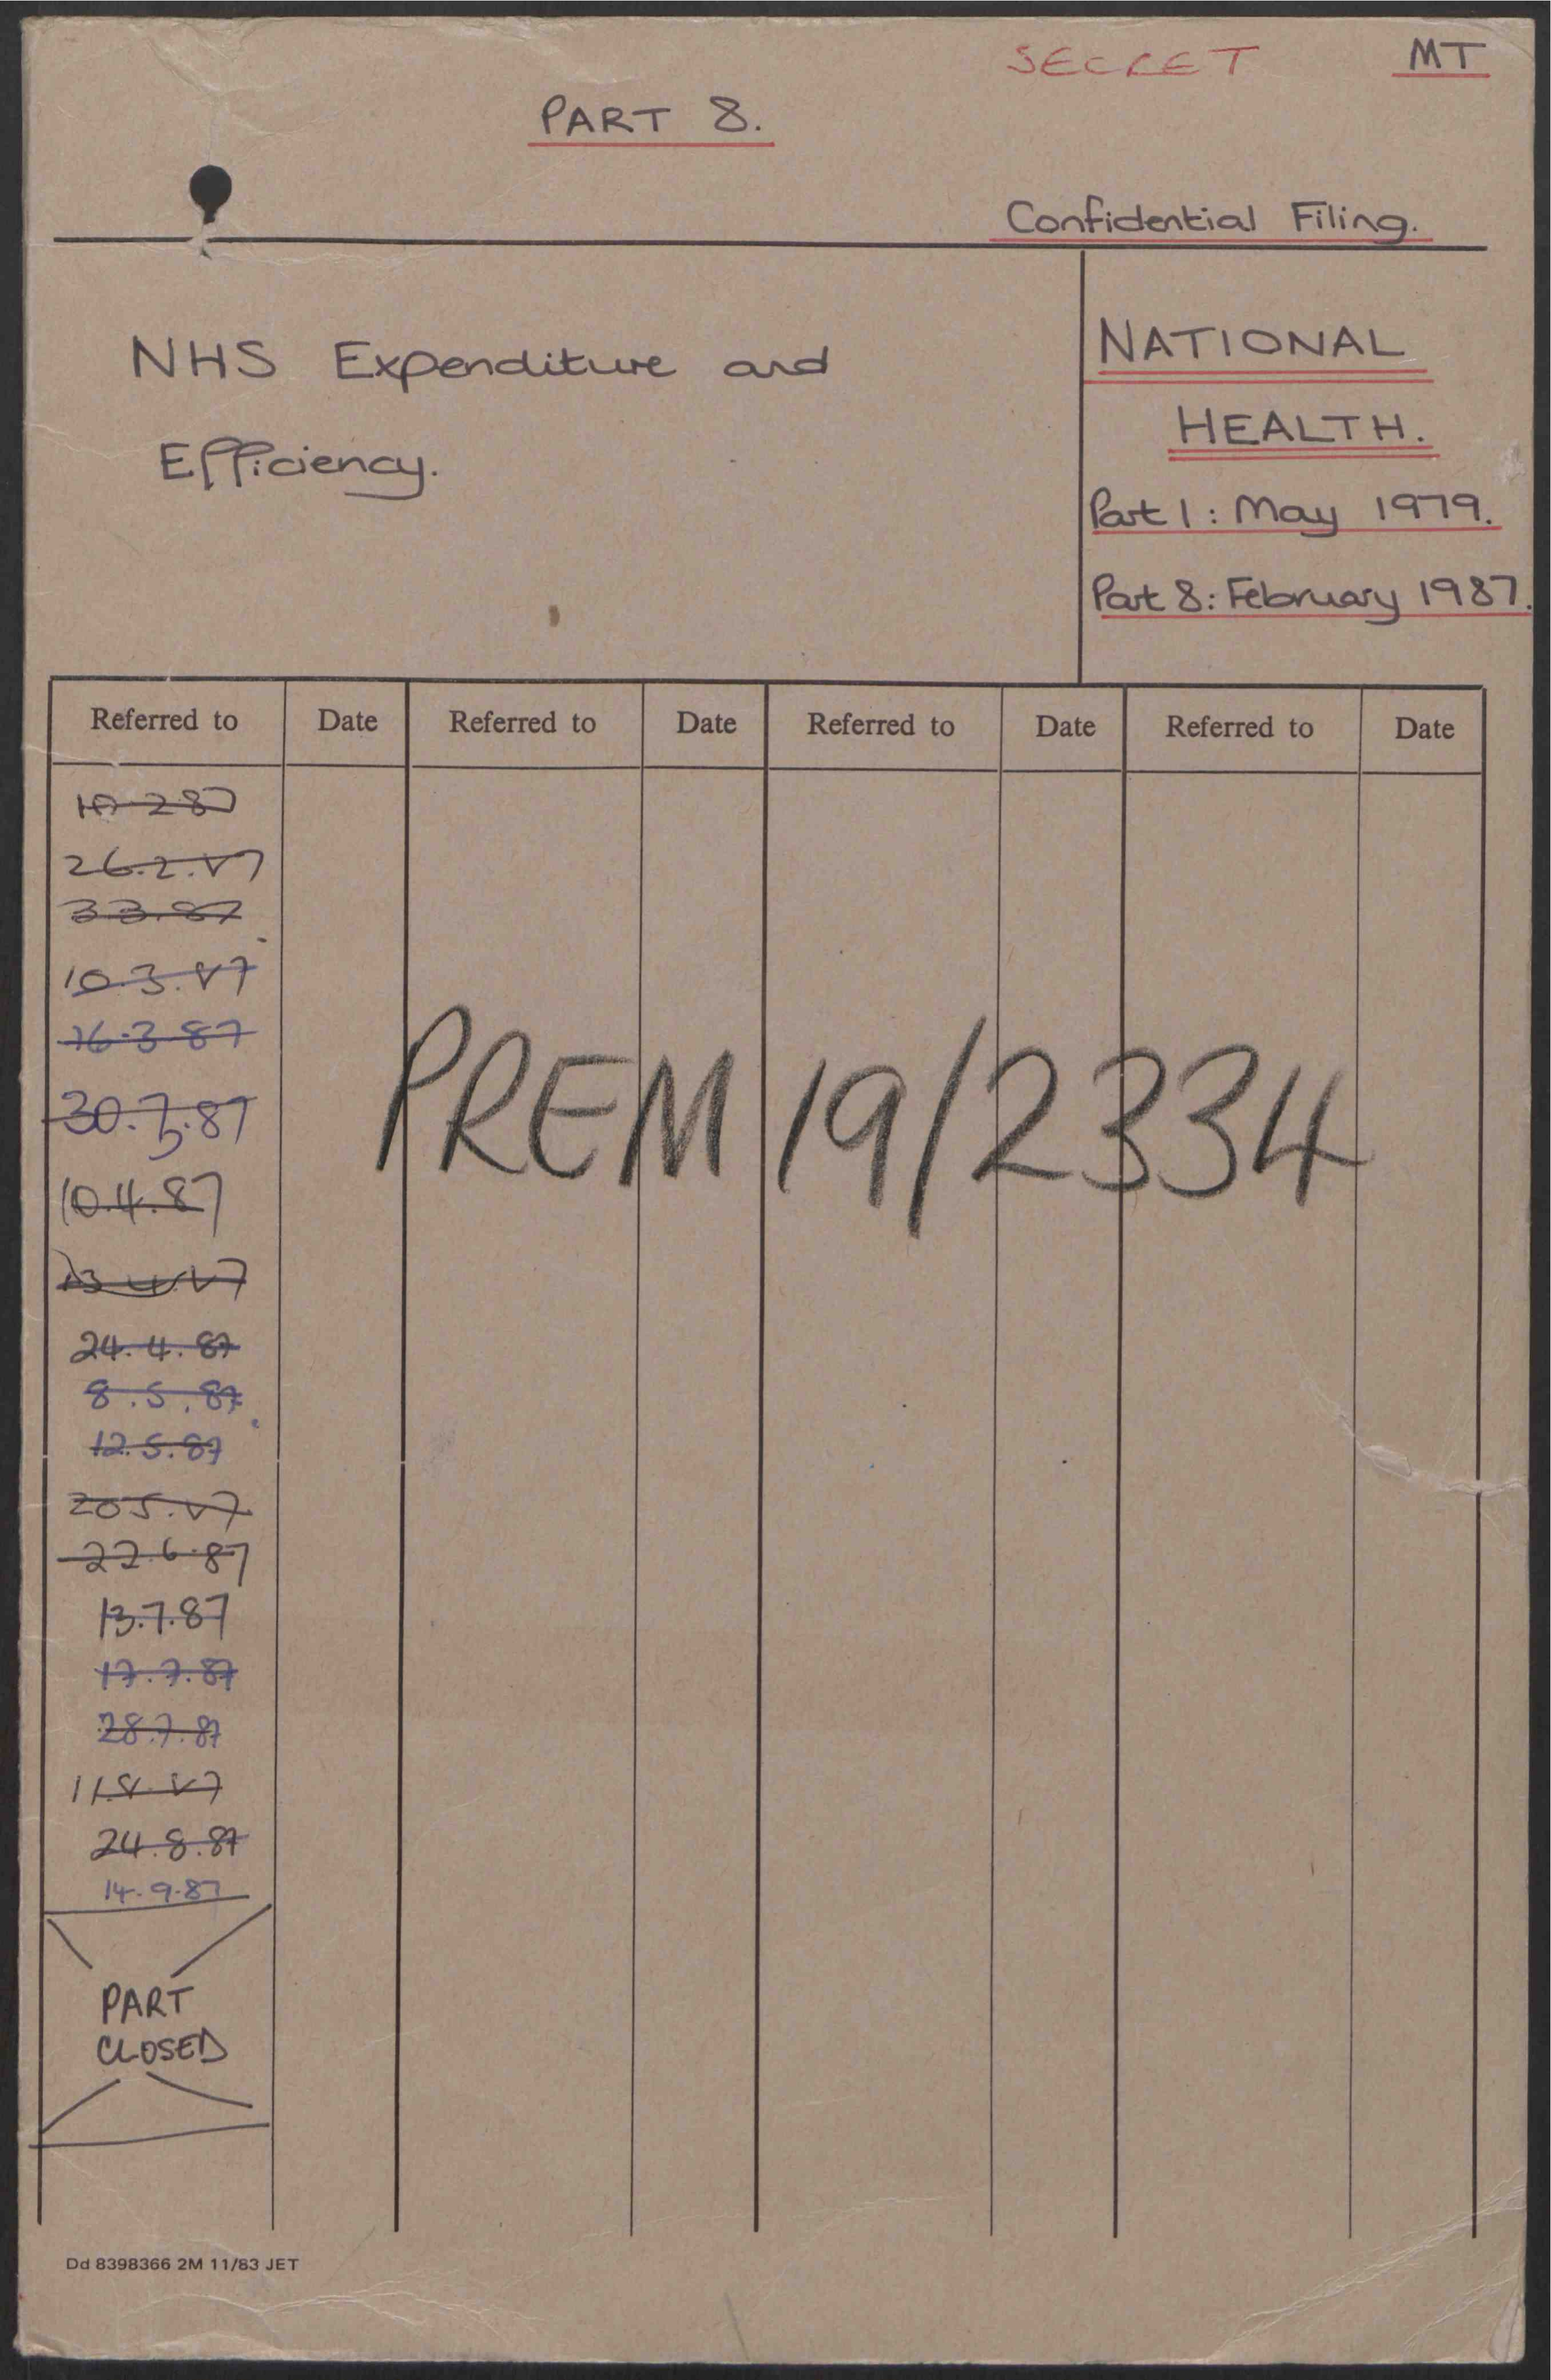 SECRET MT
PART 8.
Confidential Filing.
NHS Expenditure and
Efficiency.
NATIONAL
HEALTH.
Part 1: May 1979.
Part 8: February 1987.
Referred to Date Referred to Date Referred to Date Referred to Date
26.2.87
3.3.87
10.3.87
16.3.87
30.3.87
10.4.87
13.4.87
24.4.87
8.5.87
12.5.87
20.5.87
22.6.87
13.7.87
17.7.87
28.7.87
11.8.87
24.8.87
14.9.87
PART
CLOSED
PREM 19/2334
Dd 8398366 2M 11/83 JET